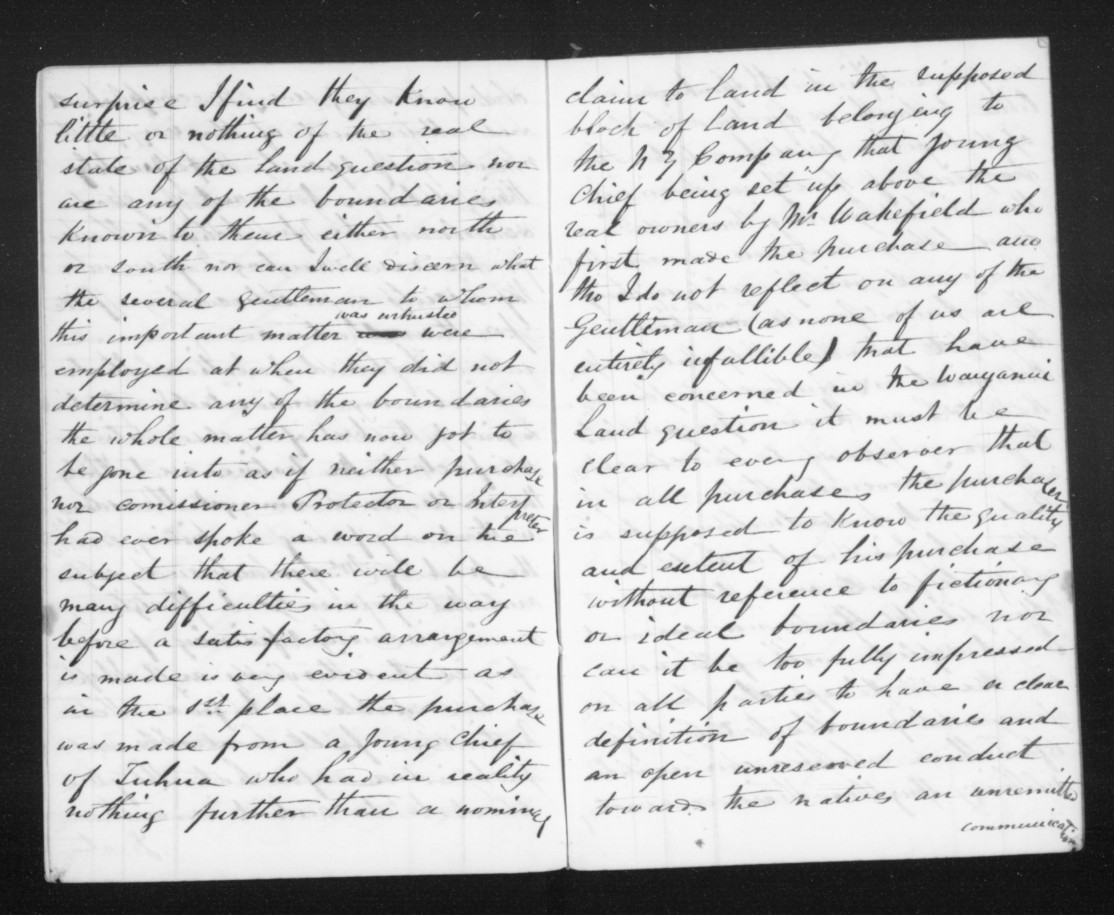 surprise I find they know
little or nothing of the real
state of the Land question nor
are any of the boundaries
known to them either north
or south nor can I well discern what
the several gentleman to whom
was intrusted
this important matter were
employed at when they did not
determine any of the boundaries
the whole matter has now got to
be gone into as if neither purchase
nor comissioner Protector or Interpreter
had ever spoke a word on the
subject that there will be
many difficulties in the way
before a satisfactory arrangement
is made is very evident as
in the 1st place the purchase
was made from a young Chief
of Tuhua who had in reality
nothing further than a nominal
claim to Land in the supposed
block of Land belonging to
the N Z Company that young
Chief being set up above the
real owners by Mr Wakefield who
first made the purchase and
tho I do not reflect on any of the
Gentleman (as none of us are
entirely infallible) that have
been concerned in the Wanganui
Land question it must be
clear to every observer that
in all purchases the purchaser
is supposed to know the quality
and extent of his purchase
without reference to fictionary
or ideal boundaries nor
can it be too fully impressed
on all parties to have a clear
definition of boundaries and
an open unreserved conduct
towards the natives an unremitted
communication